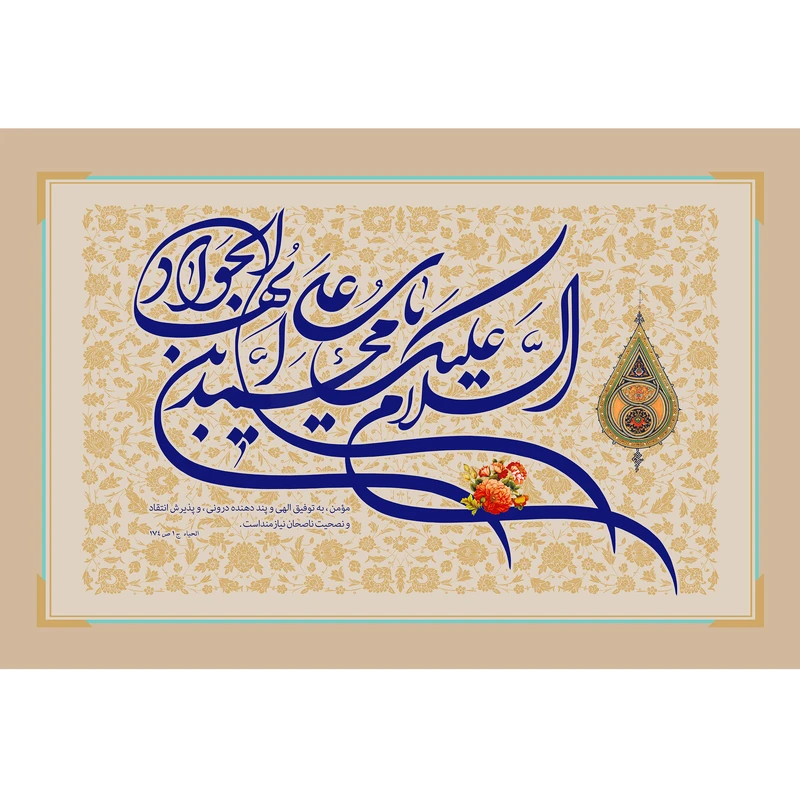 السلام علیک یا محمد بن علی ایها الجواد
مؤمن، به توفیق الهی و پند دهنده درونی، و پذیرش انتقاد
و نصحیت ناصحان نیازمند است.
الحیاه ج ۱ ص ۱۷۴